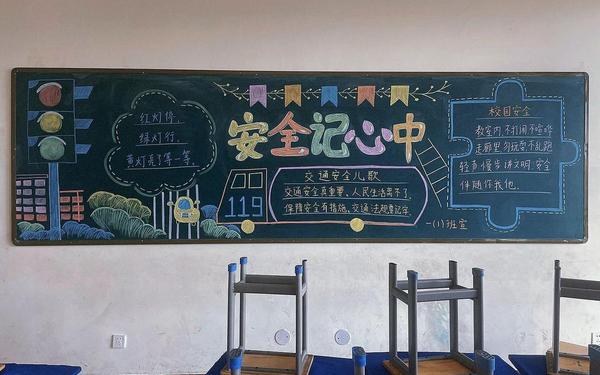 安全记心中
红灯停,
绿灯行,
黄灯亮了等一等。
119
交通安全儿歌
交通安全真重要、人民生活离不了、
保障安全有措施、交通法规要记牢
校园安全
教室内,不打闹不喧哗
走廊里勿玩耍不乱跑
轻声慢步讲文明,安全
伴随你我他。
一(1)班宣